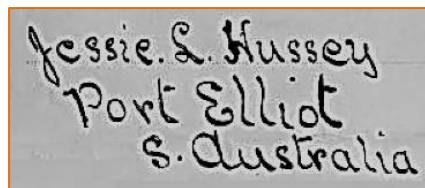 Jessie. L. Hussey
Port Elliot
S. Australia